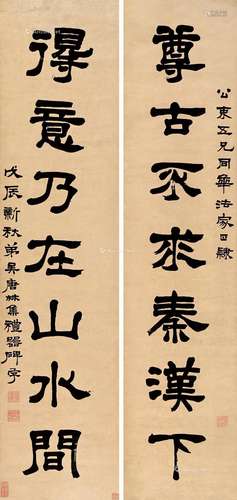 公束五兄同年法家正隸
尊古不求秦漢下
得意乃在山水間
戊辰新秋弟吳唐林集禮器碑字